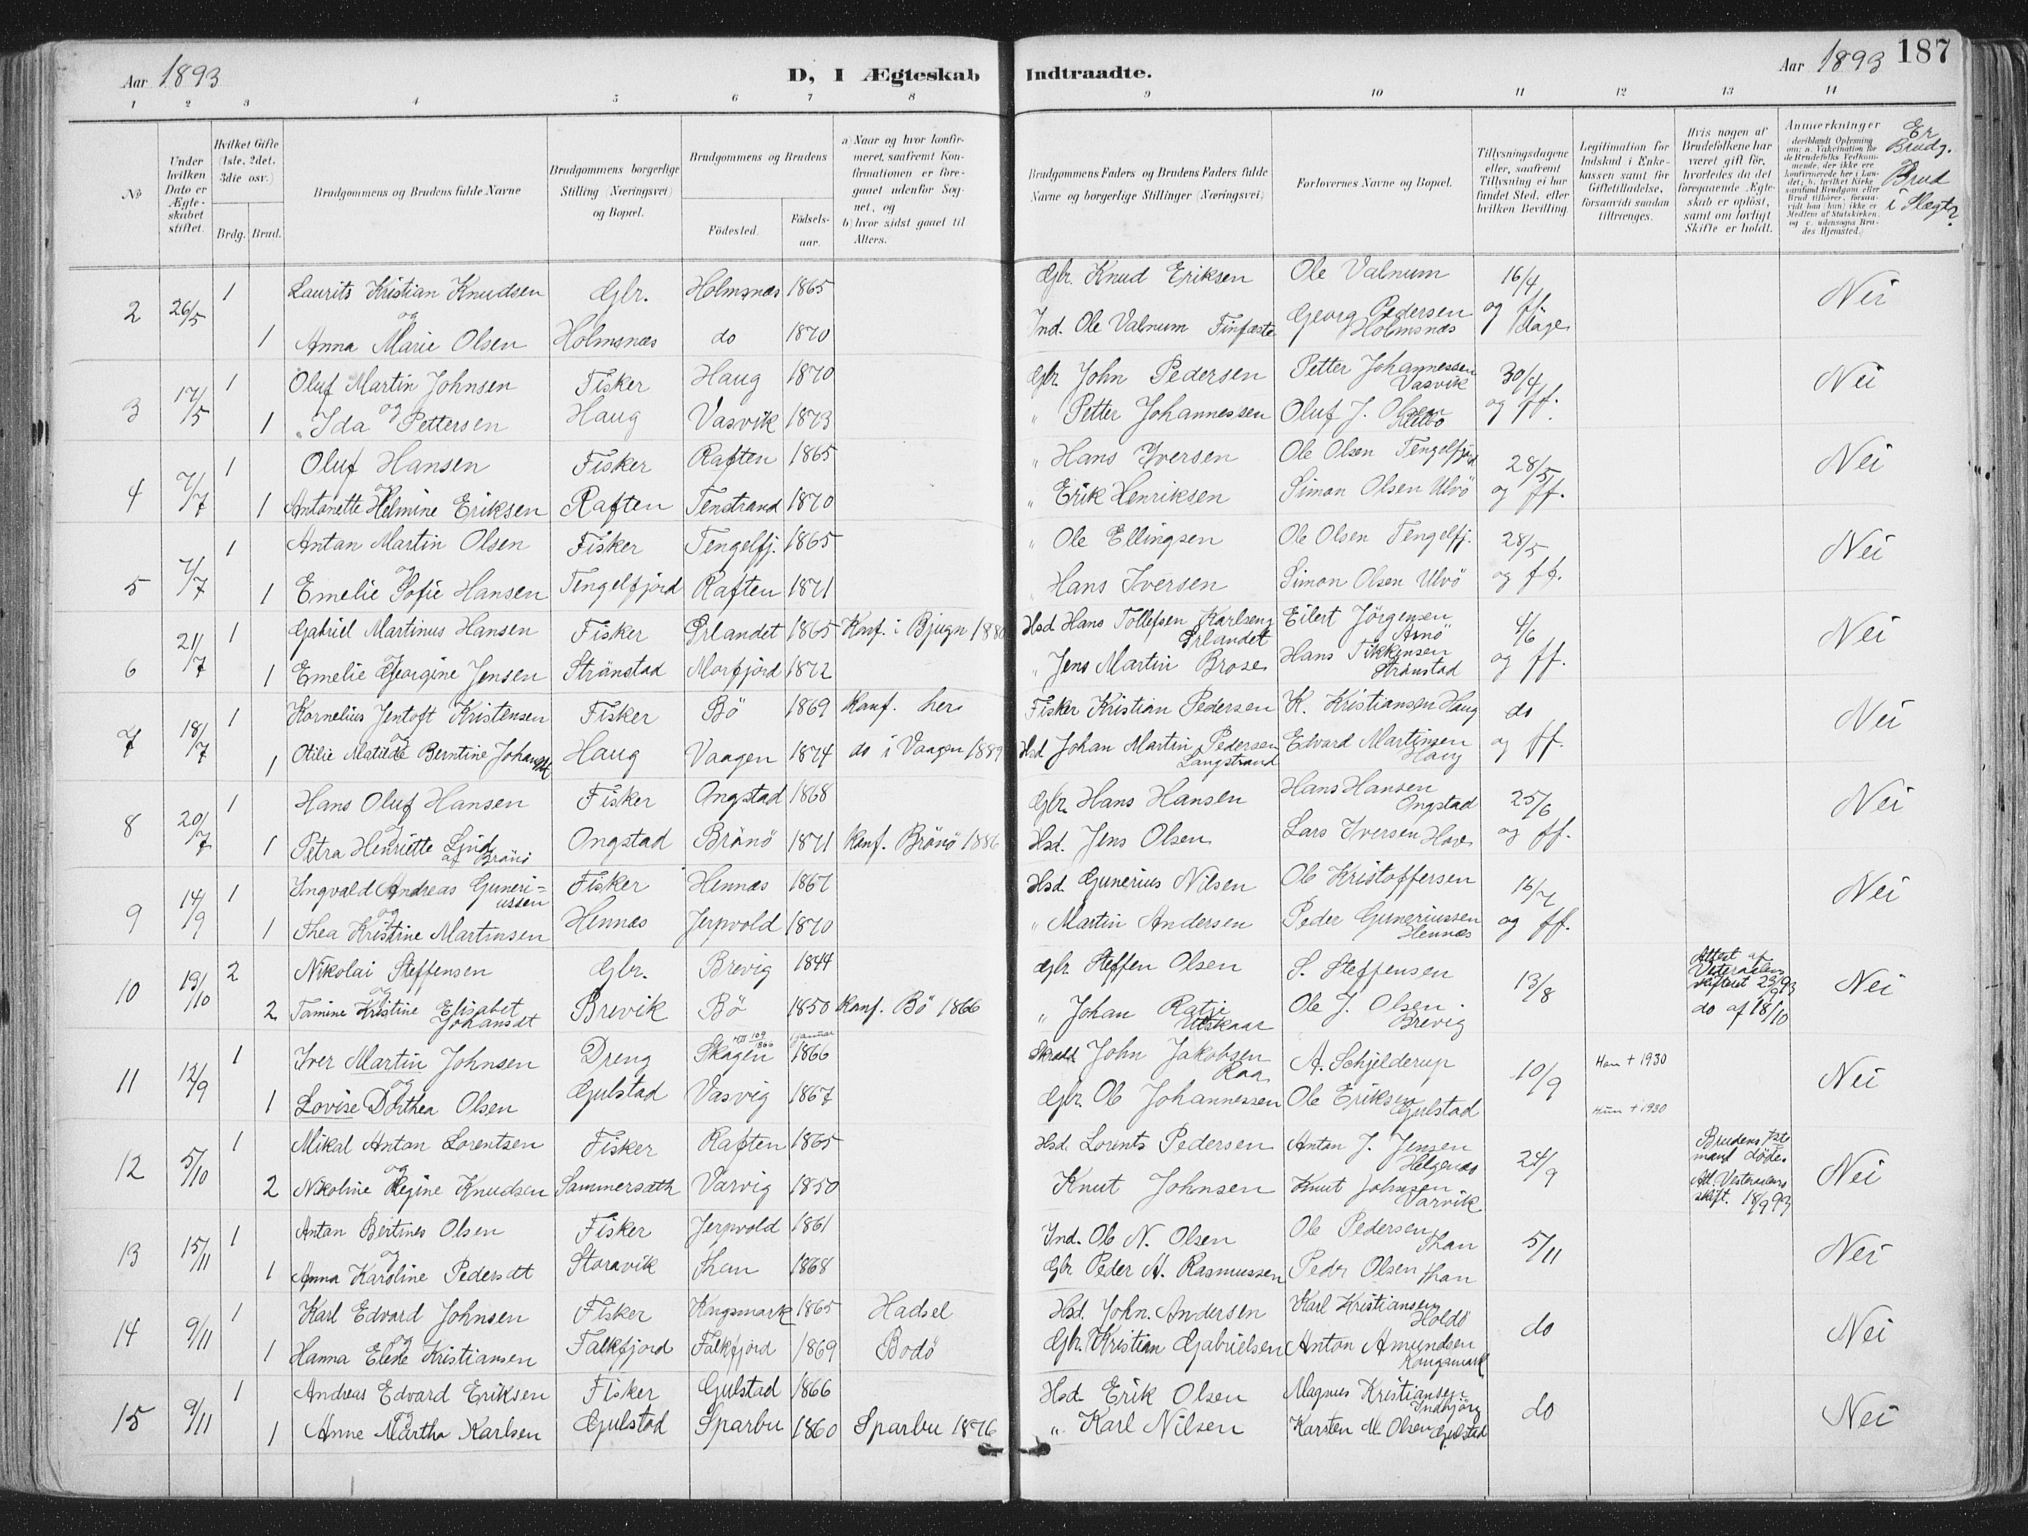 Aar 1893
D, I Ægteskab Indtraadte.
Aar 1893
187
1 2 3 4 5 6 7 8 9 10 11 12 13 14
No
Under hvilken Dato er Ægteskabet stiftet.
Hvilket Gifte (1ste, 2det, 3die osv.)
Brdg. Brud.
Brudgommens og Brudens fulde Navne
Brudgommens borgerlige Stilling (Næringsvei) og Bopæl.
Brudgommens og Brudens
Fødested. Fødselsaar.
a) Naar og hvor konfirmeret, saafremt Konfirmationen er foregaaet udenfor Sognet, og
b) hvor sidst gaaet til Alters.
Brudgommens Faders og Brudens Faders fulde Navne og borgerlige Stillinger (Næringsvei)
Forlovernes Navne og Bopæl.
Tillysningsdagene eller, saafremt Tillysning ei har fundet Sted, efter hvilken Bevilling.
Legitimation for Indskud i Enkekassen samt for Giftetilladelse, forsaavidt saadan tiltrænges.
Hvis nogen af Brudefolkene har været gift før, hvorledes da det foregaaende Ægteskab er opløst, samt om lovligt Skifte er holdt.
Anmærkninger
(deriblandt Oplysning om: a. Vakcination for de Brudefolks Vedkommende, der ikke ere konfirmerede her i Landet; b. hvilket Kirkesamfund Brudgom eller Brud tilhører, forsaavidt han (hun) ikke er Medlem af Statskirken, og c. udensogns Brudes Hjemsted.)
Er Brudg. Brud i Slægt?
2 26/5 1 Laurits Kristian Knudsen Gbr. Holmsnæs 1865 Gbr. Knud Eriksen Ole Valnum 16/4 Nei
og
1 Anna Marie Olsen Holmsnæs do 1870 Ind. Ole Valnum Finfæste Georg Pedersen Holmsnæs og ff. dage
3 17/5 1 Oluf Martin Johnsen Fisker Haug 1870 Gbr John Pedersen Petter Johannessen Vasvik 30/4 Nei
og
1 Ida Pettersen Haug Vasvik 1873 " Petter Johannessen Oluf J. Olsen og ff.
4 7/7 1 Oluf Hansen Fisker Raften 1865 " Hans Iversen Ole Olsen Tengelfjord 28/5 Nei
og
1 Antonette Helmine Eriksen Raften Tenstrand 1870 " Erik Henriksen Simon Olsen Ulvö og ff.
5 7/7 1 Antan Martin Olsen Fisker Tengelfj. 1865 " Ole Ellingsen Ole Olsen Tengelfj. 28/5 Nei
og
1 Emelie Sofie Hansen Tengelfjord Raften 1871 " Hans Iversen Simon Olsen Ulvö og ff.
6 21/7 1 Gabriel Martinus Hansen Fisker Örlandet 1865 Konf. i Bjugn 1880 Hsd Hans Tollefsen Karlseng Örlandet Eilert Jörgensen Arnö 4/6 Nei
og
1 Emelie Georgine Jensen Strönstad Morfjord 1872 " Jens Martin Brose Hans Tikkensen Strönstad og ff.
7 18/7 1 Kornelius Jentoft Kristensen Fisker Bö 1869 Konf. her Fisker Kristian Pedersen K. Kristiansen Haug do Nei
og
1 Otilie Matilde Berntine Johansdt Haug Vaagen 1874 do i Vaagen 1889 Hsd Johan Martin Pedersen Langstrand Edvard Martinsen Haug og ff.
8 20/7 1 Hans Oluf Hansen Fisker Ongstad 1868 Gbr. Hans Hansen Hans Hansen Ongstad 25/6 Nei
og
1 Petra Henriette Lind af Brönö Ongstad Brönö 1871 Konf. Brönö 1886 Hsd. Jens Olsen Lars Iversen Hove og ff.
9 14/9 1 Ingvald Andreas Guneriussen Fisker Hennæs 1867 Hsd. Gunerius Nilsen Ole Kristoffersen 16/7 Nei
og
1 Thea Kristine Martinsen Hennæs Jerpvold 1870 " Martin Andersen Peder Guneriussen Hennæs og ff.
10 13/10 2 Nikolai Steffensen Gbr. Brevig 1844 Gbr. Steffen Olsen S. Steffensen 13/8 Attest af Vesteraalen skifteret 23/9 93 Nei
og
2 Tamine Kristine Elisabet Johansdt Brevik Bö 1850 Konf. Bö 1866 " Johan Ratje Utskaar Ole J. Olsen Brevig do af 18/10
11 12/9 1 Iver Martin Johnsen Dreng Skagen 109/1866 januar 1866 John Jakobsen Raa A. Schjelderup 10/9 Ham + 1930 Nei
og
1 Lovise Dorthea Olsen Gulstad Vasvig 1867 Gbr. Ole Johannessen Ole Eriksen Gulstad Hun + 1930
12 5/10 1 Mikal Antan Lorentsen Fisker Raften 1865 Hsd. Lorents Pedersen Antan J. Jensen Helgenæs 24/9 Brudens 1ste mand døde. Nei
og
2 Nikoline Regine Knudsen Sammersæth Varvig 1850 Knut Johnsen Knut Johnsen Varvik Att. Vesteraalens skift. 18/9 93
13 15/11 1 Antan Bertines Olsen Fisker Jerpvold 1861 Ind. Ole N. Olsen Ole Pedersen Than 5/11 Nei
og
1 Anna Karoline Pedersdt Storavik Than 1868 Gbr Peder A. Rasmussen Peder Olsen Than
14 9/11 1 Karl Edvard Johnsen Fisker Kngsmark 1865 Hadsel Hsd. John. Andersen Karl Kristiansen Holdö do Nei
og
1 Hanna Elene Kristiansen Falkfjord Falkfjord 1869 Bodö Gbr. Kristian Gabrielsen Anton Amundsen Kongsmark
15 9/11 1 Andreas Edvard Eriksen Fisker Gulstad 1866 Hsd. Erik Olsen Magnus Kristiansen Indbjörg do Nei
1 Anne Martha Karlsen Gulstad Sparbu 1860 Sparbu 1876 " Karl Nilsen Karsten M. Olsen Gulstad